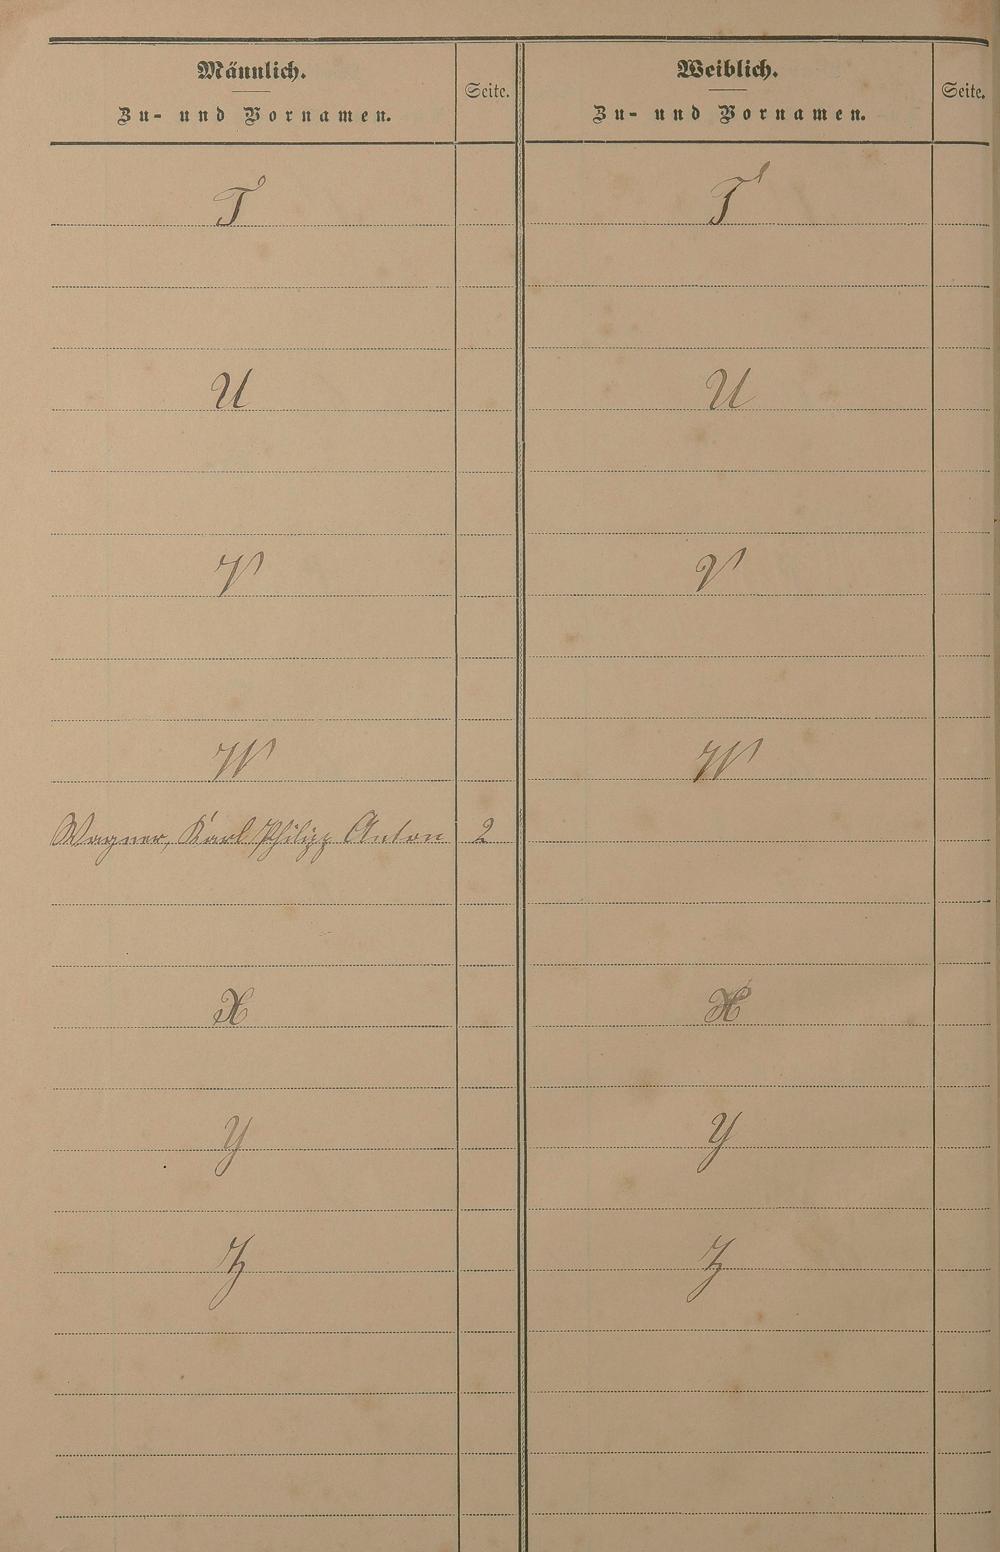 Männlich.
Zu- und Vornamen.
Seite.
Weiblich.
Zu- und Vornamen.
Seite.
T
T
U
U
V
V
W
W
Wagner, Karl Philipp Anton 2
X
X
Y
Y
Z
Z